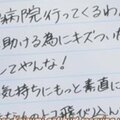 病院行ってくるわ!
助ける為にキズつい
してやんな!
気持ちにもっと素直に
飛び込ん